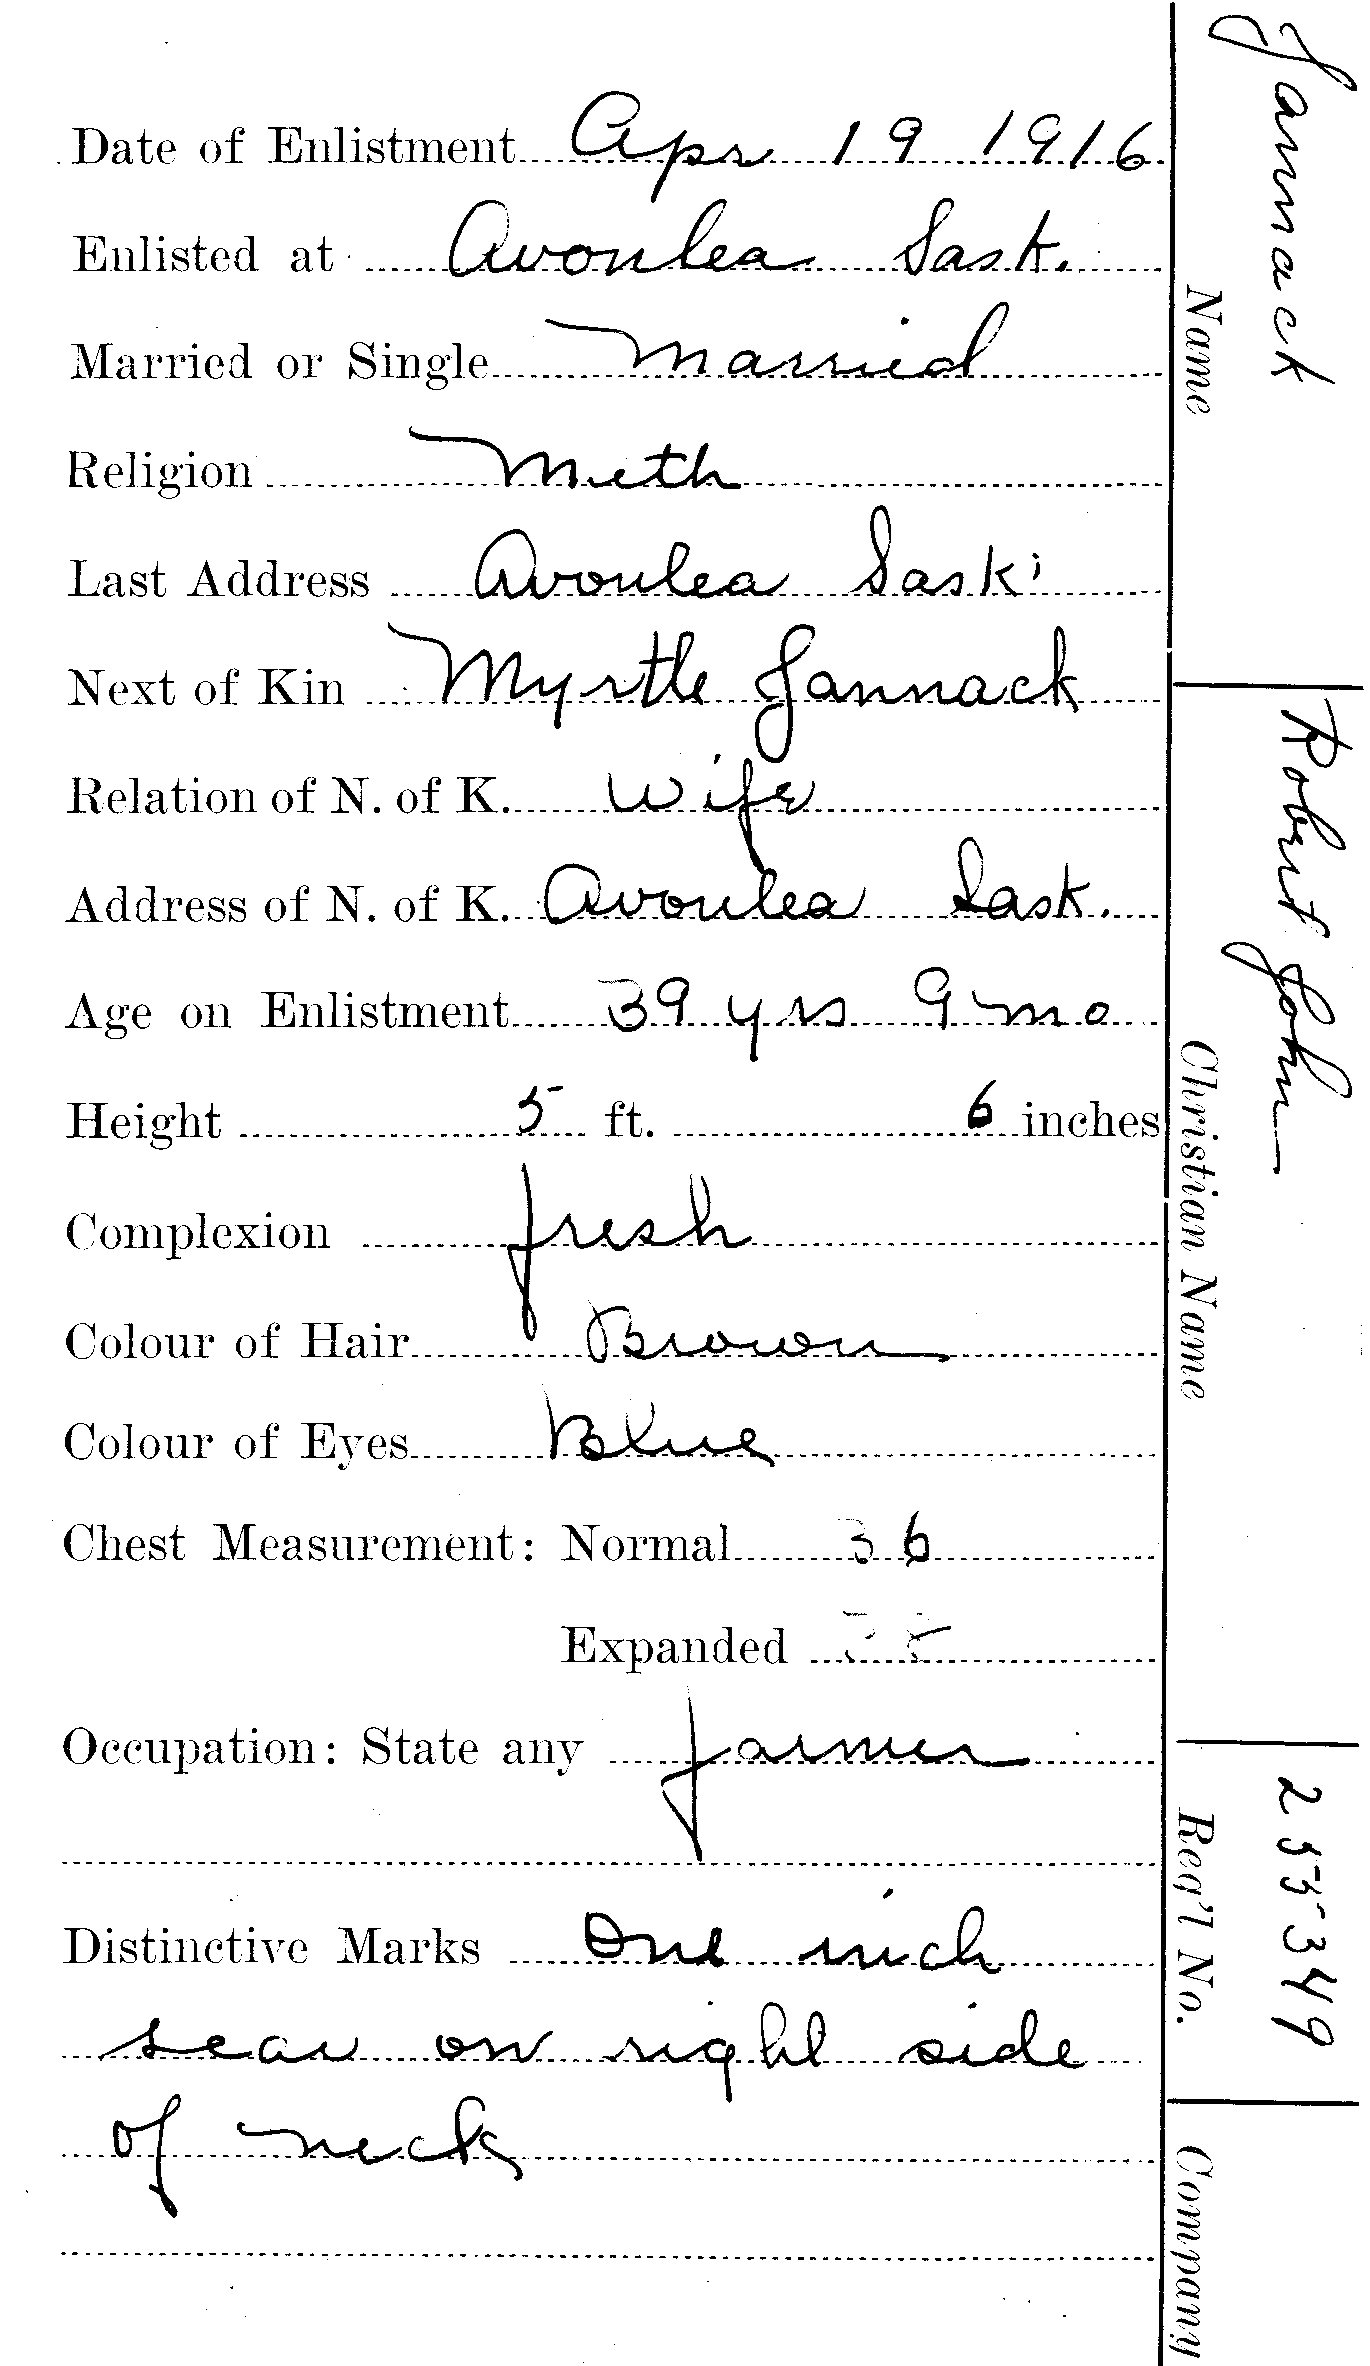 Date of Enlistment Apr 19 1916
Enlisted at Avonlea Sask.
Married or Single Married
Religion Meth
Last Address Avonlea Sask.
Next of Kin Myrtle Jannack
Relation of N. of K. Wife
Address of N. of K. Avonlea Sask.
Age on Enlistment 39 yrs 9 mo
Height 5 ft. 6 inches
Complexion fresh
Colour of Hair Brown
Colour of Eyes Blue
Chest Measurement: Normal 36
Expanded
Occupation: State any farmer
Distinctive Marks One inch
scar on right side
of neck
Jannack
Name
Robert John
Christian Name
255349
Reg'l No.
Company